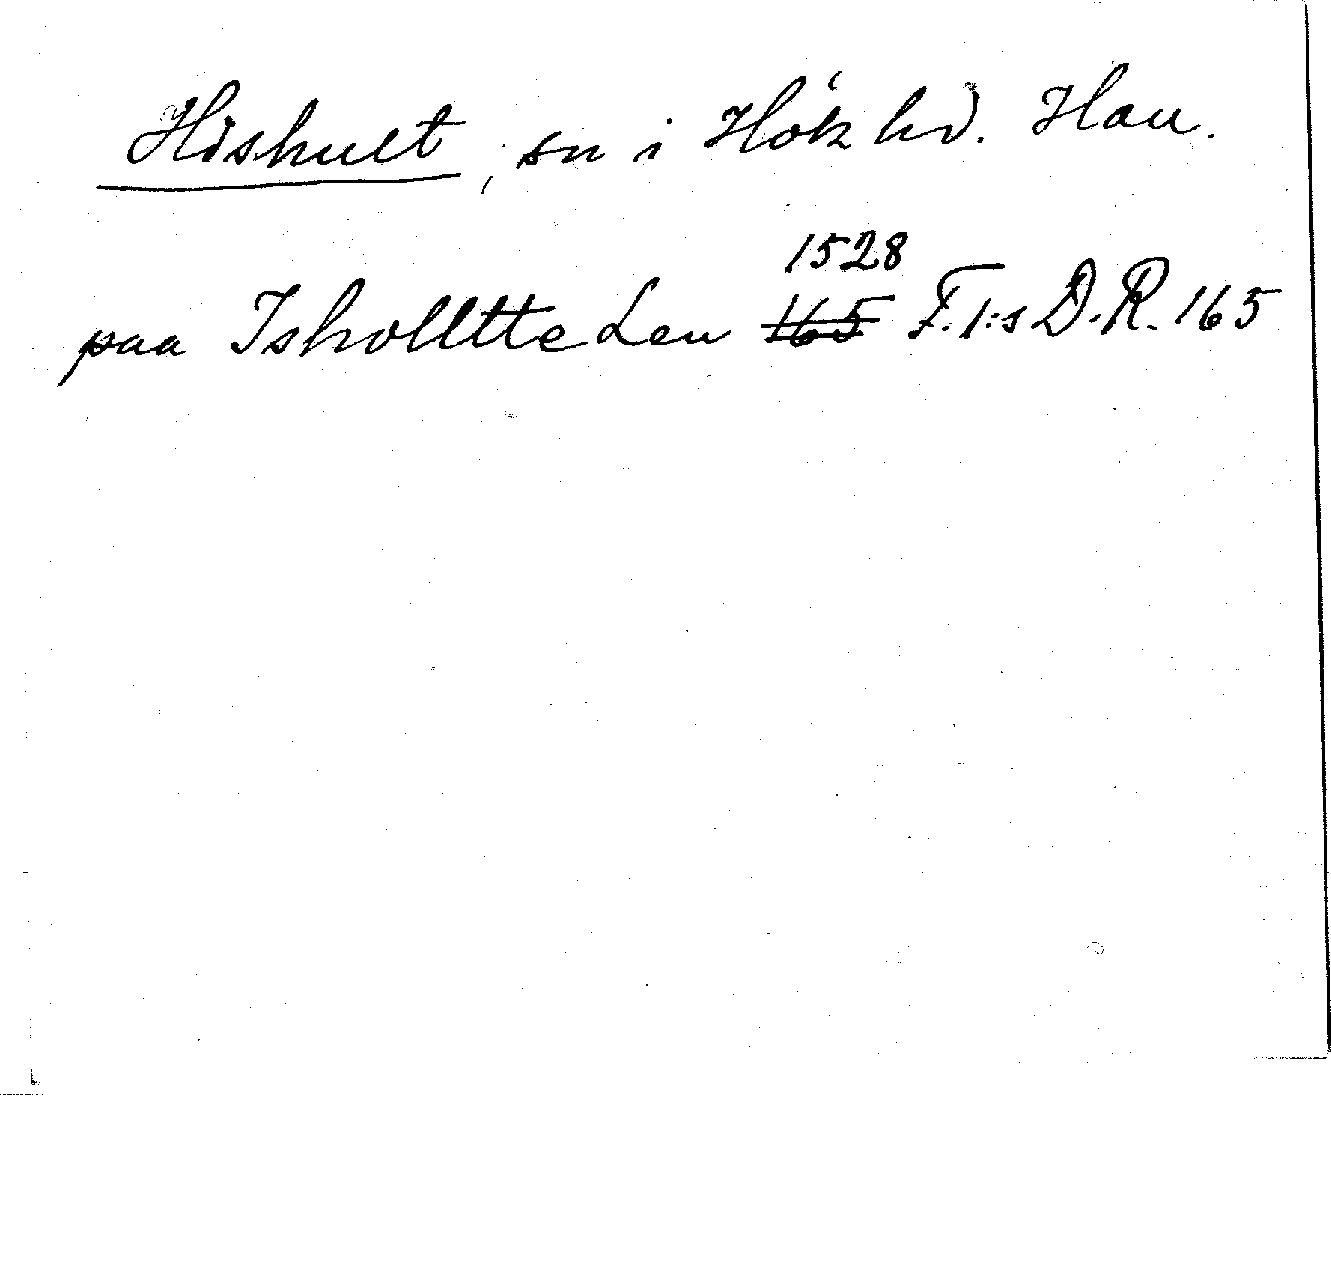 Hishult, sn i Hök hd. Hall.
1528
paa Isholltte Len 165 F.1:s D.R. 165